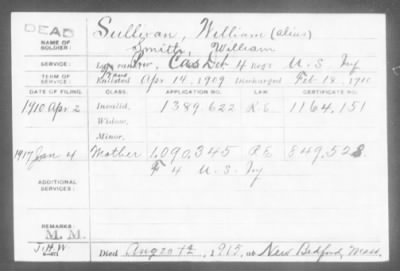 DEAD
NAME OF SOLDIER: Sullivan, William (alias)
Smith, William
SERVICE: Cas Det 4 Regt U.S. Iy
TERM OF SERVICE: Enlisted Apr 14, 1909 Discharged Feb 18, 1910
DATE OF FILING. CLASS. APPLICATION NO. LAW. CERTIFICATE NO.
1910 Apr. 2 Invalid, 1389.622 1164.151
Widow,
Minor,
1917 Jan 4 Mother 1,090,345 849,528.
F 4 U.S. Iy
ADDITIONAL SERVICES:
REMARKS: M. M.
J.H.W.
Died 1915, at New Bedford, Mass.